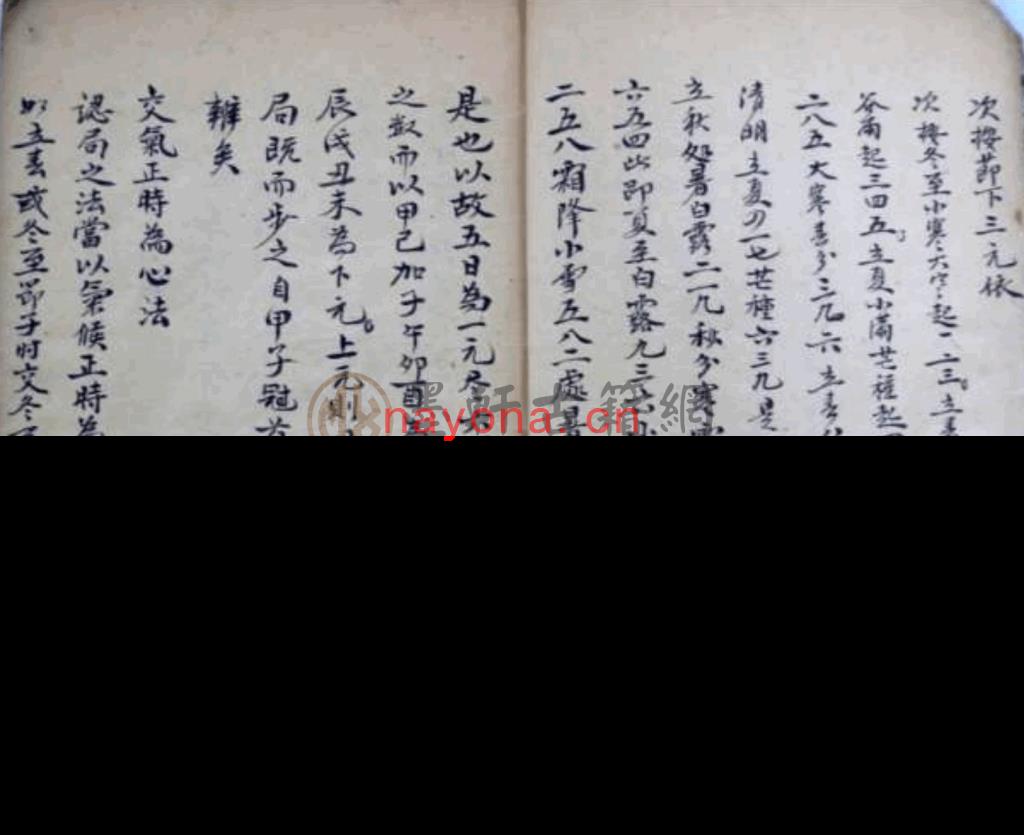 次接節下三元依
次接冬至小寒大寒起一二三立春
谷雨起三四五立夏小滿芒種起
二八五大寒春分三九六立春
清明立夏四一七芒種六三九是
立秋処暑白露二一九秋分寒露
六五四此即夏至白露九三六
二五八霜降小雪五八二處暑
是也以故五日為一元尽
之数而以甲己加子午卯酉為
辰戌丑未為下元上元則
局既而步之自甲子冠
辦矣
交氣正時為心法
認局之法當以氣候正時為
如立春或冬至節子时交冬至
墨軒古籍網
nayona.cn